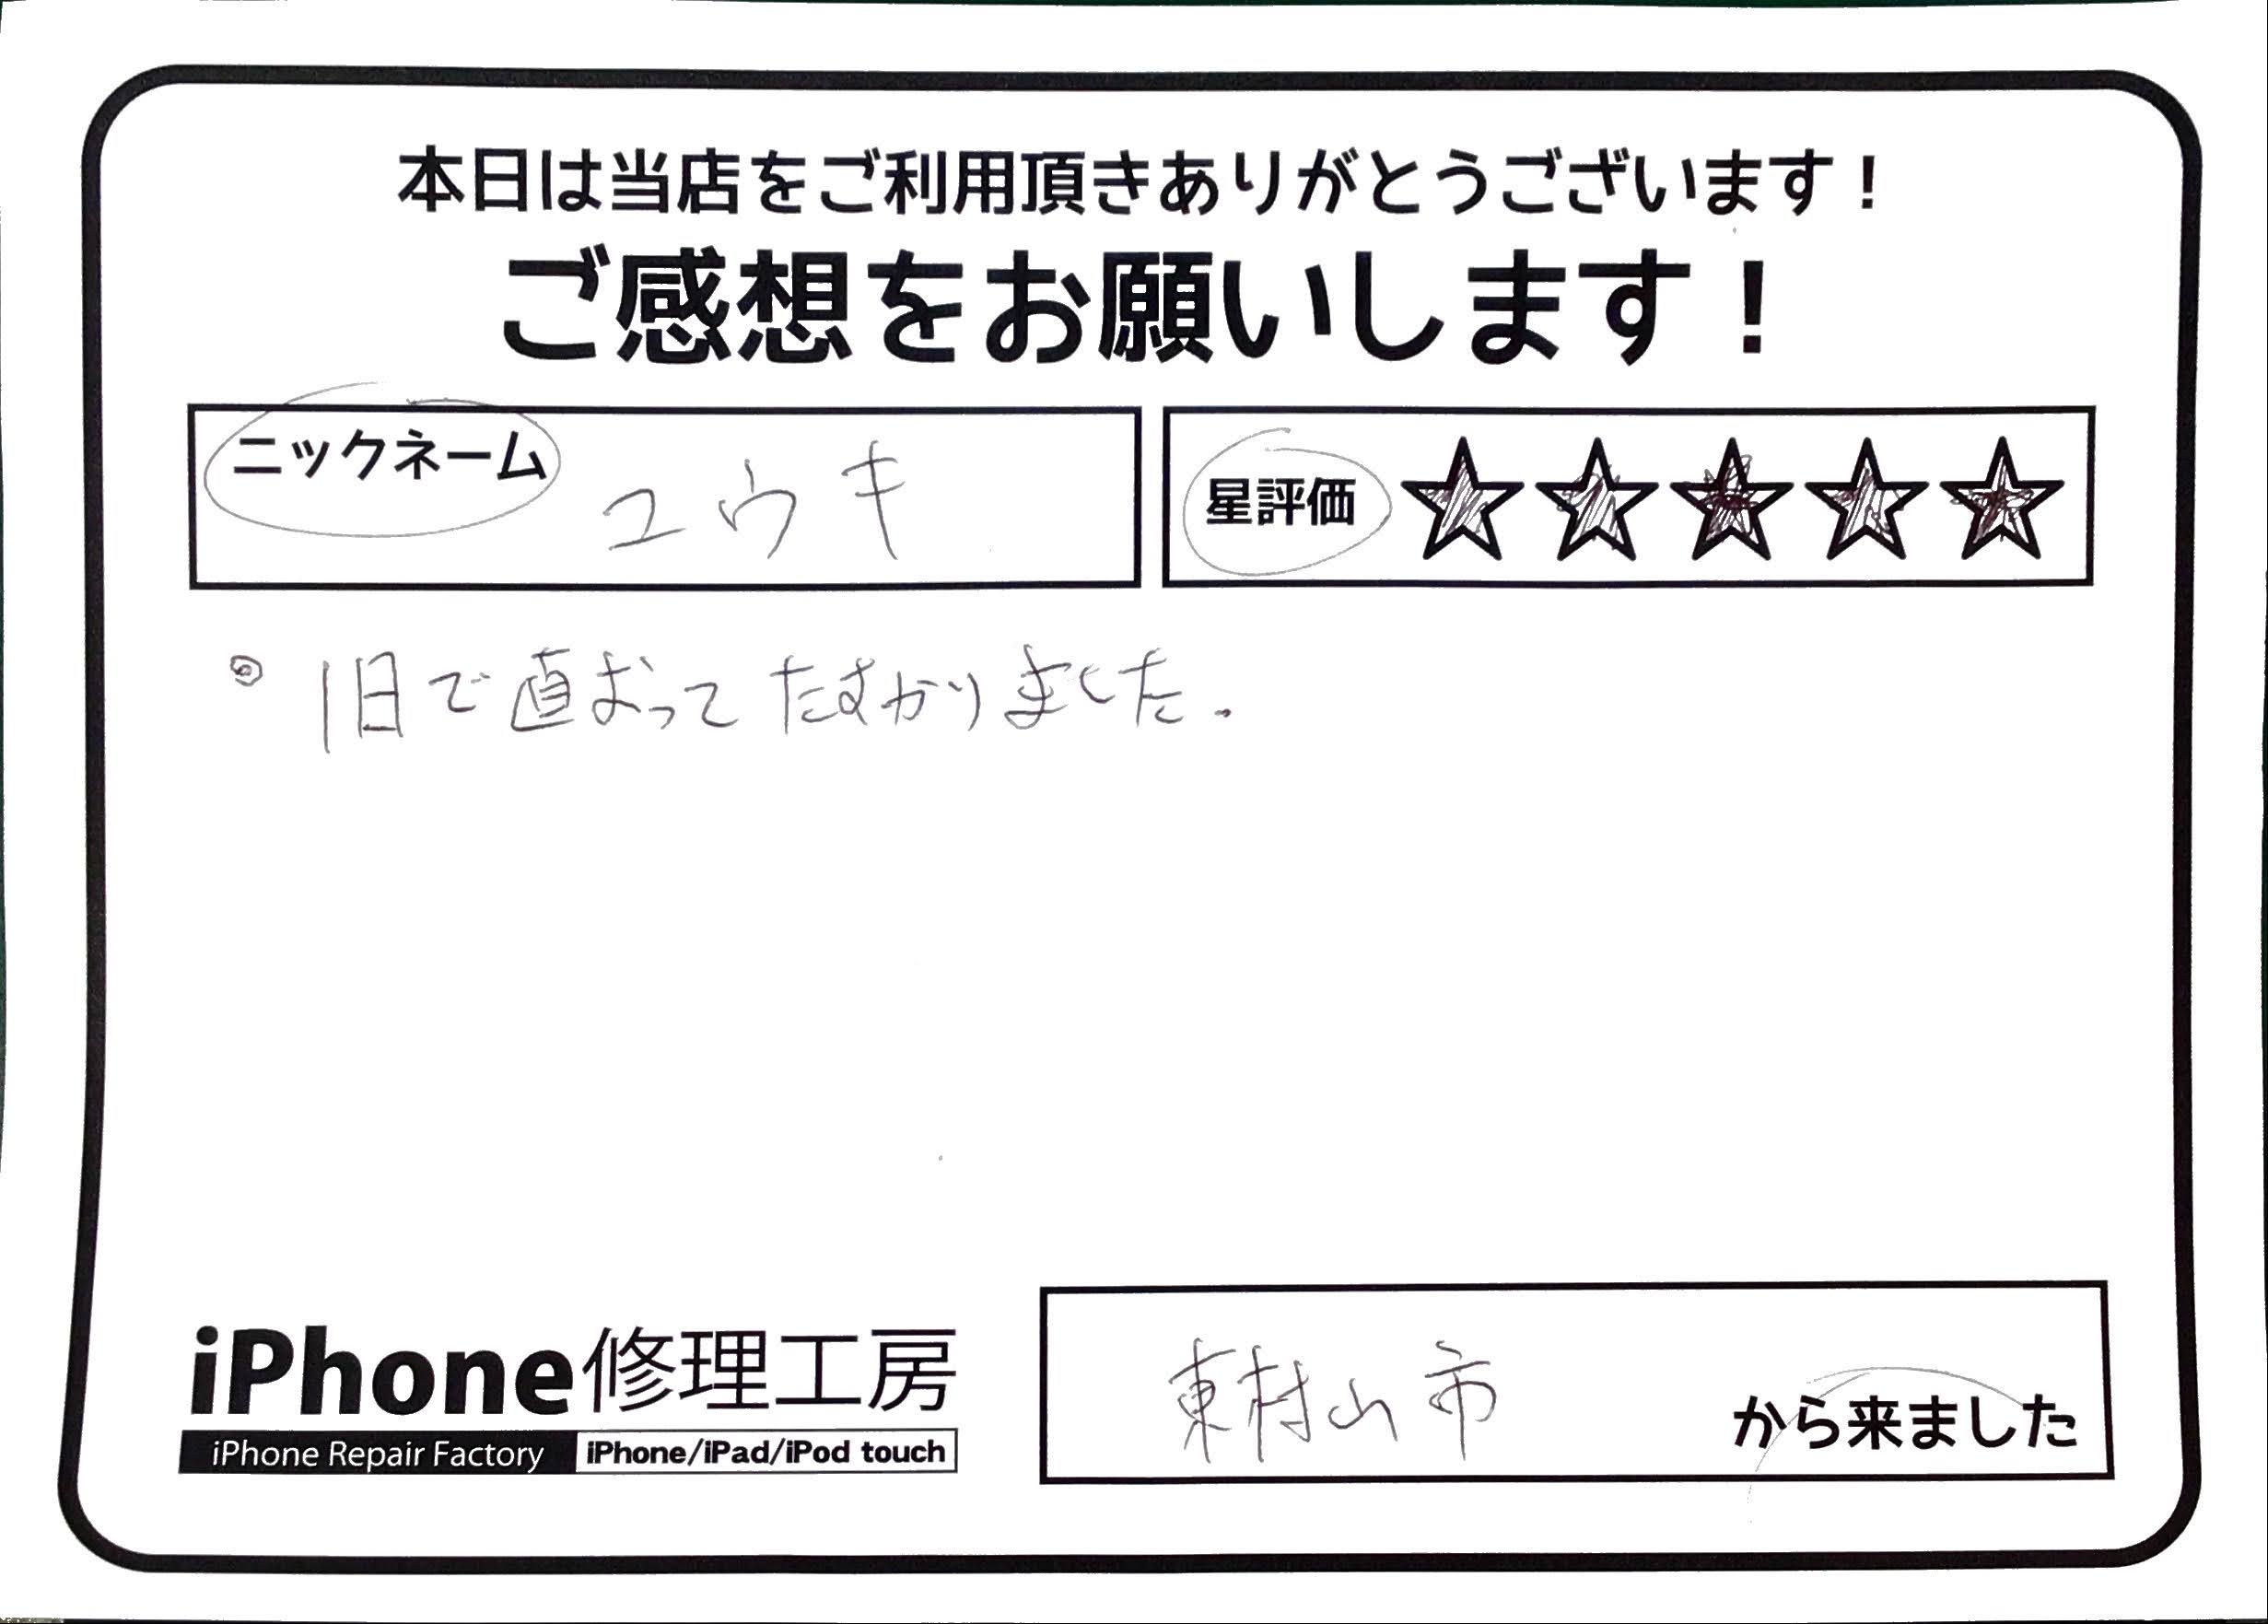 本日は当店をご利用頂きありがとうございます！
ご感想をお願いします！
ニックネーム ユウキ
星評価 ★★★★★
1日で直おってたすかりました。
iPhone修理工房
iPhone Repair Factory iPhone/iPad/iPod touch
東村山市 から来ました